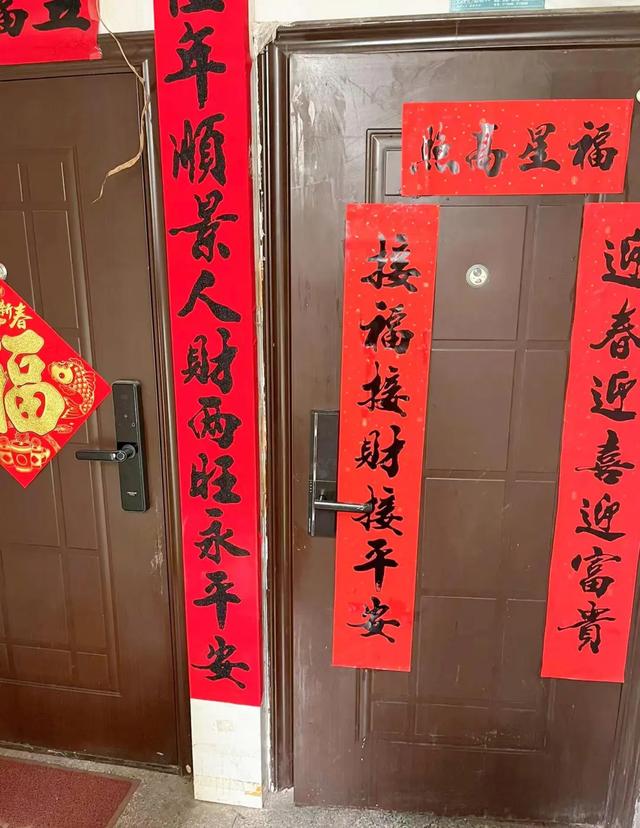 五福
年順景人財两旺永平安
新春
福
福星高照
迎春迎喜迎富貴
接福接財接平安